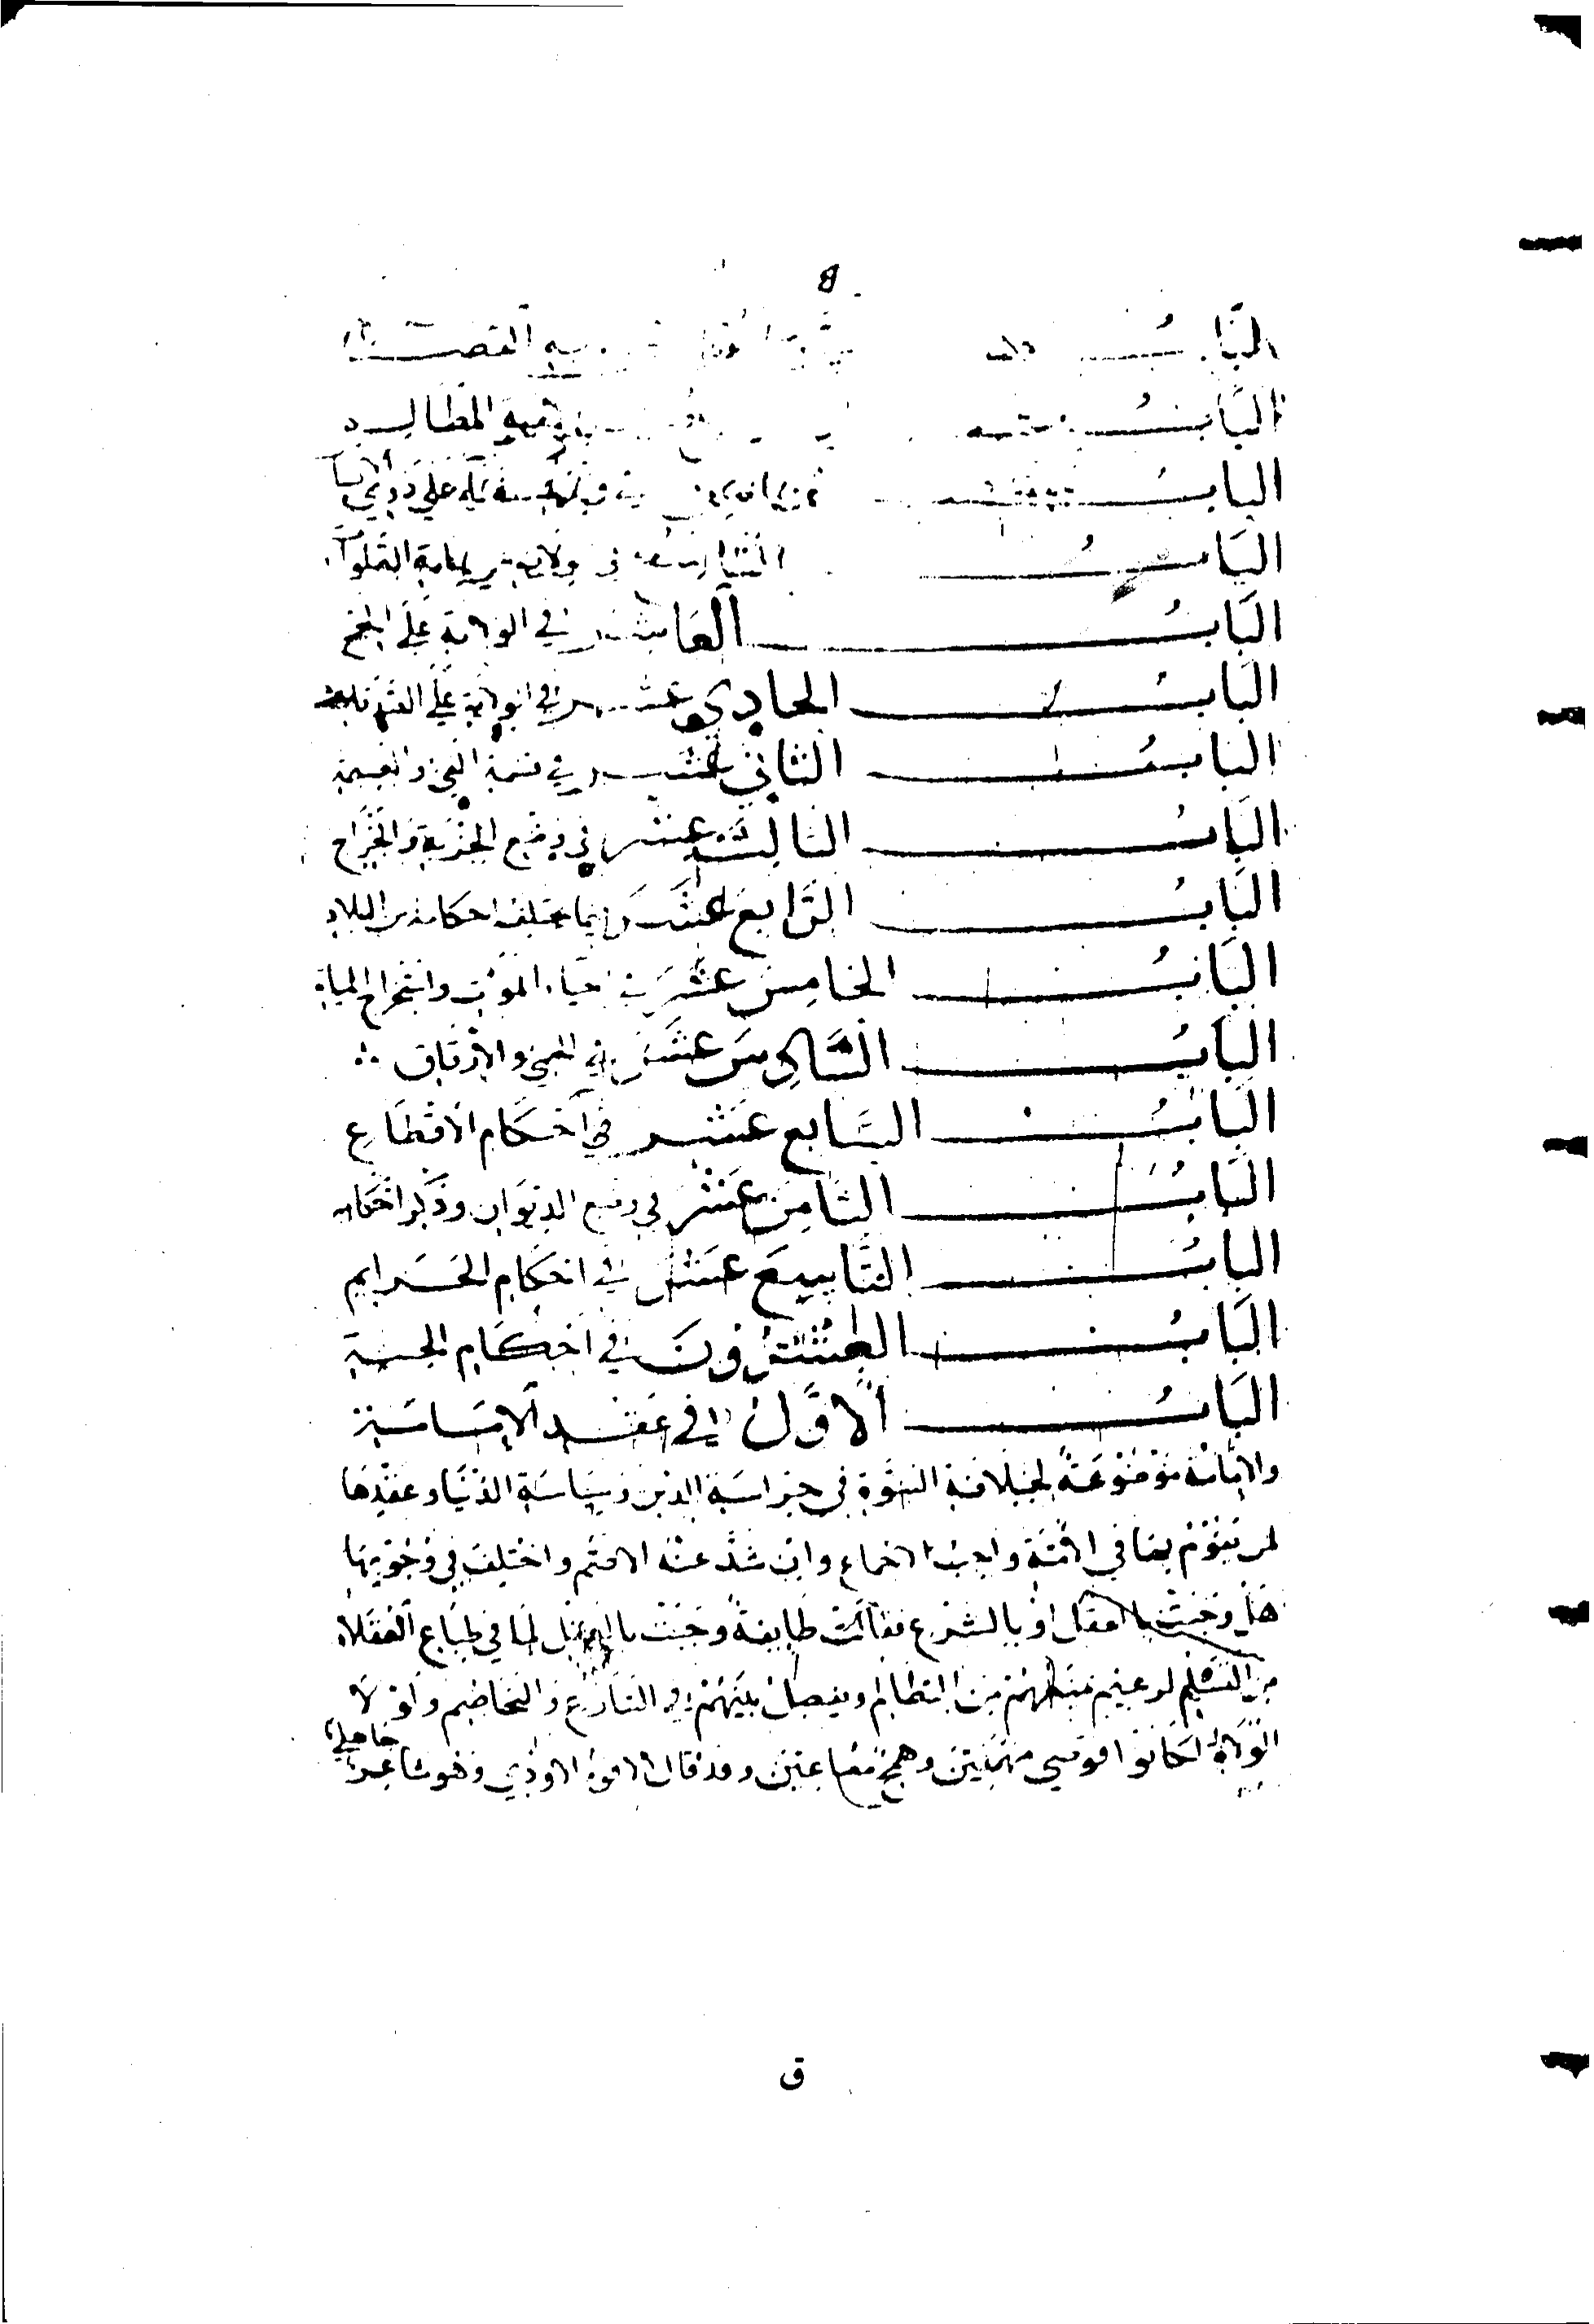 8
الباب القضاء
الباب المظالم
الباب على ذوي الأنساب
الباب التاسع في ولاية إمامة الصلوات
البَابُ العَاشر في الولاية عَلَى الحج
البَابُ الحادي عشر في الولاية عَلَى الصدقات
البابُ الثاني عشر في قسمة الفيء والغنيمة
البَابُ الثالث عشر في وضع الجزية والخراج
البَابُ الرَّابِع عَشَر فيما يختلف احكامه من البلاد
البَابُ الخامِس عشَر في احياء الموات واستخراج المياه
البَابُ السَّادِس عَشَر في الحمى والارفاق
البَابُ السَّابع عَشر في أحكام الاقطاع
البَابُ الثامِن عَشر في وضع الديوان وذكر احكامه
البابُ التاسِع عَشر في احكام الجَرايم
البَابُ العشرُونَ في احكام الحسبة
البَابُ الأوَّل في عقد الإمامة
والامامة موضوعة لخلافة النبوة في حراسة الدين وسياسة الدنيا وعقدها
لمن يقوم بها في الأمة واجب بالاجماع وان شذ عنه الاصم واختلف في وجوبها
هل وجبت بالعقل او بالشرع فقالت طايفة وجبت بالعقل لما في طباع العقلاء
من التسليم لزعيم يمنعهم من التظالم ويفصل بينهم في التنازع والتخاصم ولولا
الولاة لكانوا فوضى مهملين وهمج مضاعين وقد قال الافوه الاودي وهو شاعر جاهلي
ق